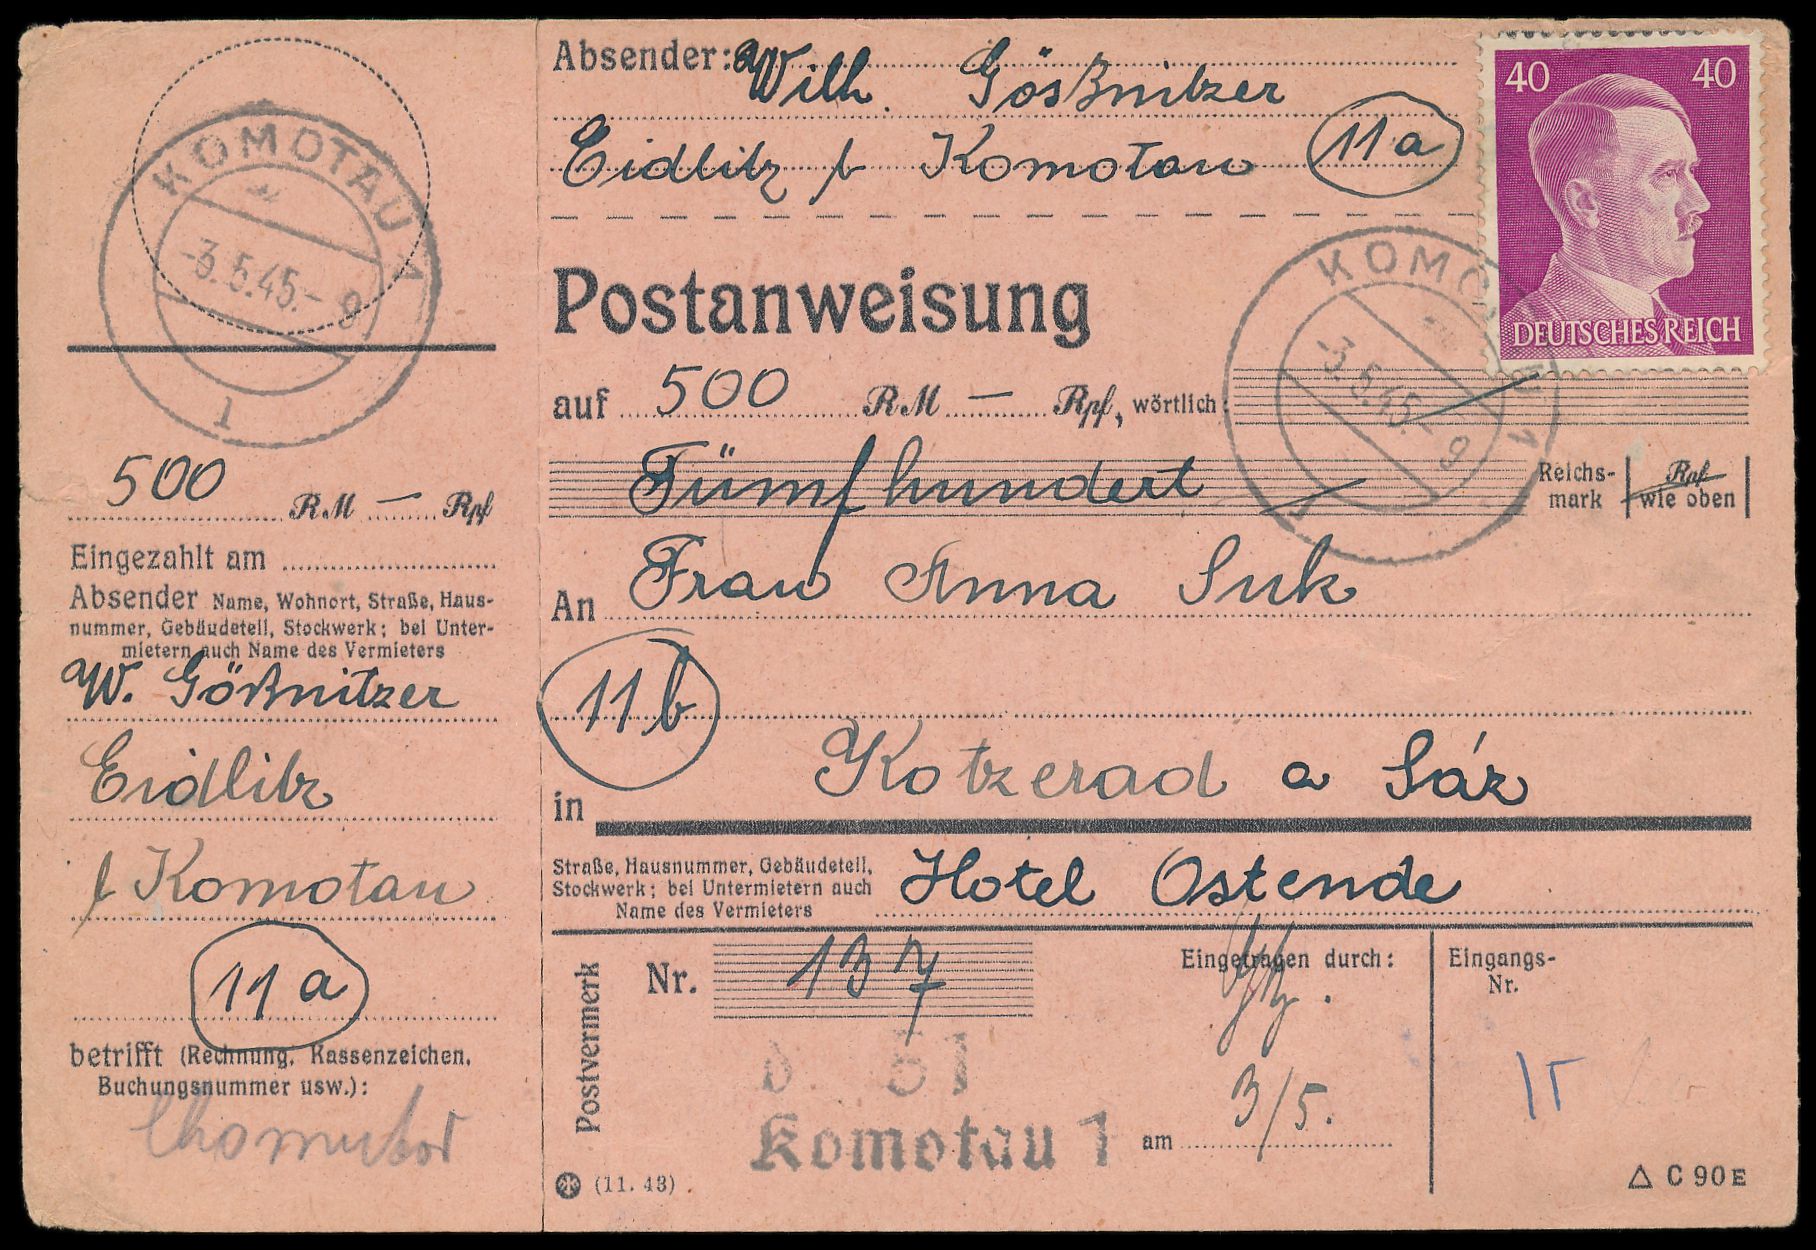 KOMOTAU 1
-3.5.45.- 9
1
500 RM — Rpf
Eingezahlt am
Absender Name, Wohnort, Straße, Haus-
nummer, Gebäudeteil, Stockwerk; bei Unter-
mietern auch Name des Vermieters
W. Gößnitzer
Eidlitz
b Komotau
11a
betrifft (Rechnung, Kassenzeichen,
Buchungsnummer usw.):
Chomutov
Absender: Wilh. Gösßnitzer
Eidlitz b Komotau 11a
40 40
DEUTSCHES REICH
Postanweisung
KOMOTAU 1
-3.5.45.- 9
auf 500 RM — Rpf, wörtlich:
Fünfhundert Reichs-
mark
Rpf
wie oben
An Frau Anna Suk
11b
in Kotzerad a Sáz
Straße, Hausnummer, Gebäudeteil,
Stockwerk; bei Untermietern auch
Name des Vermieters
Hotel Ostende
Postvermerk
Nr. 137
Eingetragen durch:
Eingangs-
Nr.
51
Komotau 1
am 3/5.
(11. 43)
C 90 E